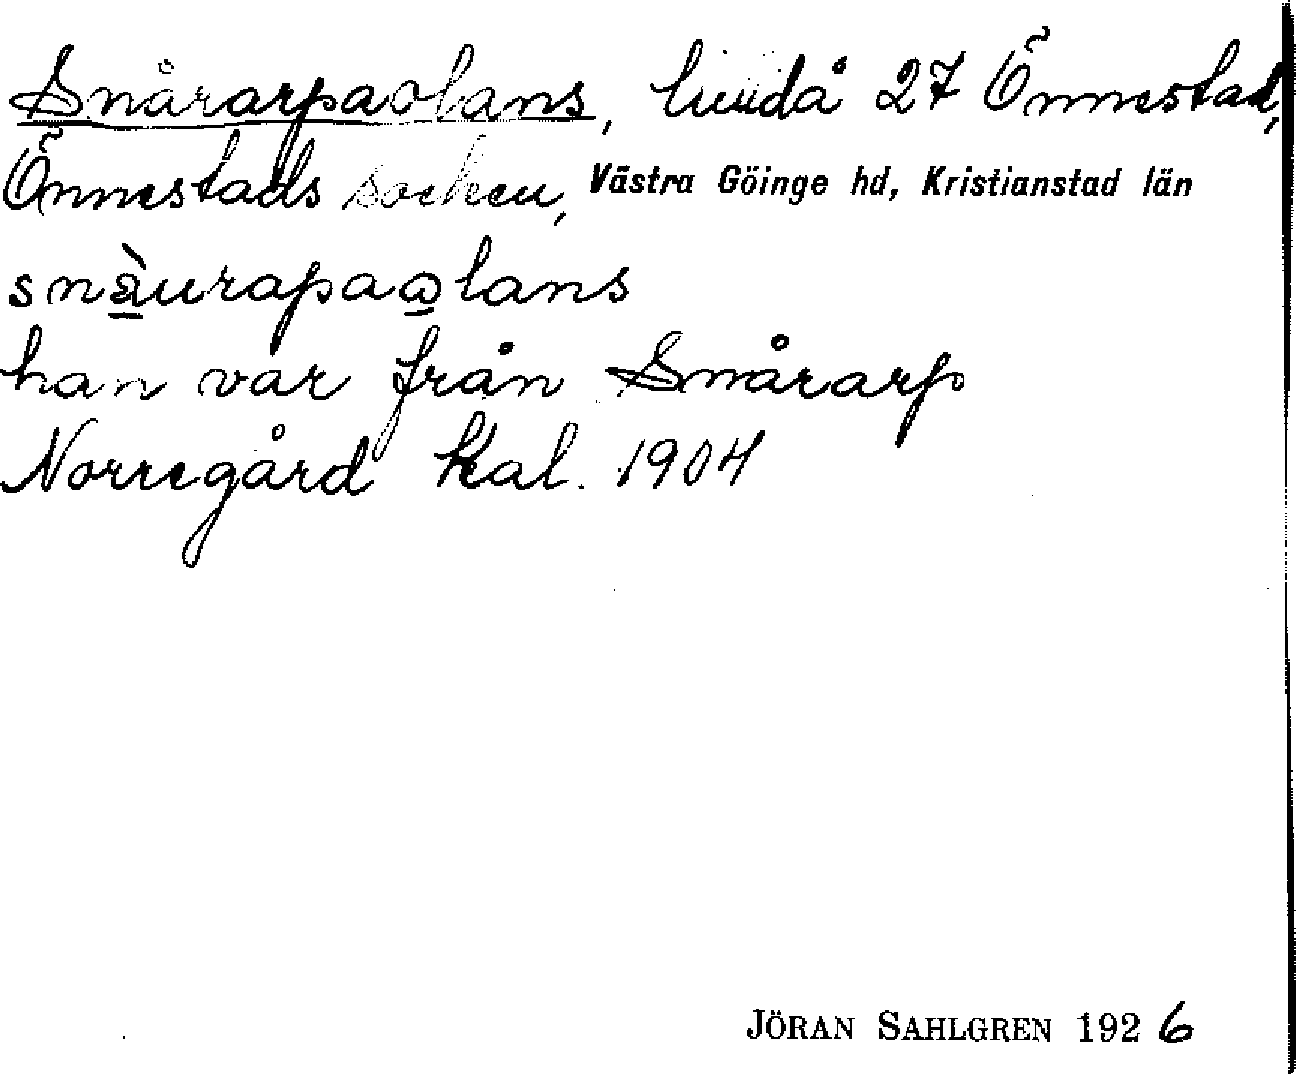 Snårarpaolans, bindå 27 Önnestad,
Önnestads socken, Västra Göinge hd, Kristianstad län
snàurapaolans
han var från Snårarp
Norregård kal. 1904
JÖRAN SAHLGREN 1926